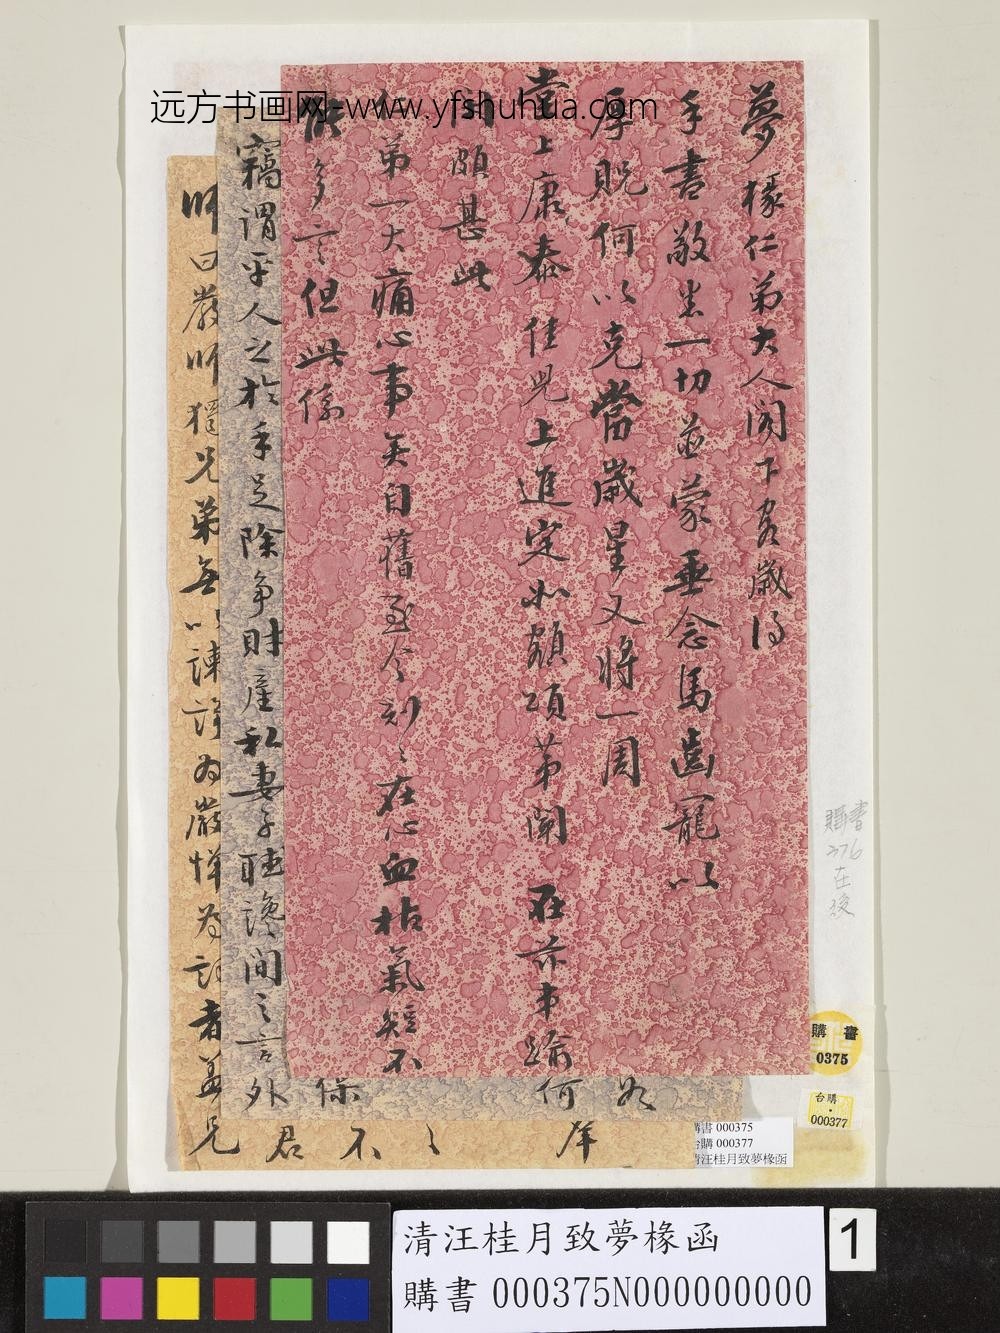 远方书画网-www.yfshuhua.com
夢椽仁弟大人閣下客歲得
手書敬悉一切並蒙垂念馬齒寵以
厚貺何以克當歲星又將一周
堂上康泰佳兒上進定如額頌第聞
在蘇事
頗甚此
弟一大痛心事矣自舊至今刻〻在心血枯氣短不
多言但此係
竊謂平人之於手足除爭財產私妻子聽讒間之言外
師曰嚴師獨兄弟無以諫諍為嚴憚為訓者蓋兄
保
何
君
不
購書
376
在後
購書
0375
台購
000377
購書 000375
台購 000377
清汪桂月致夢椽函
清汪桂月致夢椽函
購書 000375N000000000
1